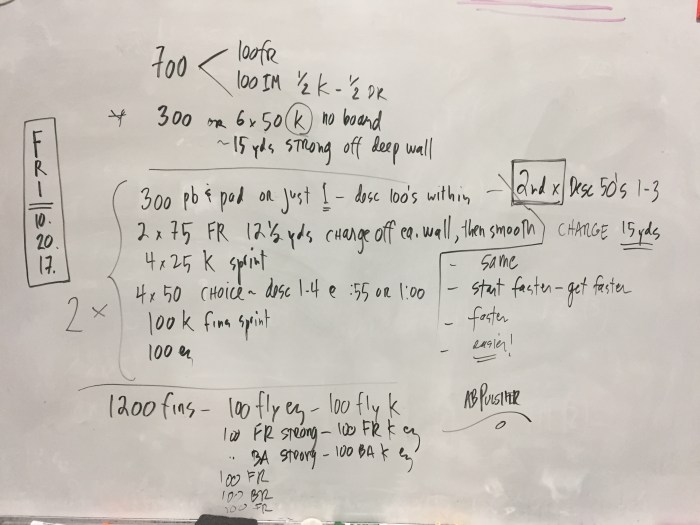 FRI
10.
20.
17.
700 < 100 FR
100 IM ½ K - ½ DR
* 300 or 6 x 50 K no board
~15 yds strong off deep wall
2 x
300 pb & pad or just 1 - desc 100's within - 2nd x Desc 50's 1-3
2 x 75 FR 12½ yds charge off ea. wall, then smooth CHARGE 15 yds
4 x 25 K sprint - same
4 x 50 CHOICE ~ desc 1-4 @ :55 or 1:00 - start faster - get faster
100 K fins sprint - faster
100 ez - easier!
1200 fins - 100 fly ez - 100 fly K
100 FR strong - 100 FR K ez
" BA strong - 100 BA K ez
100 FR
100 BR
100 FR